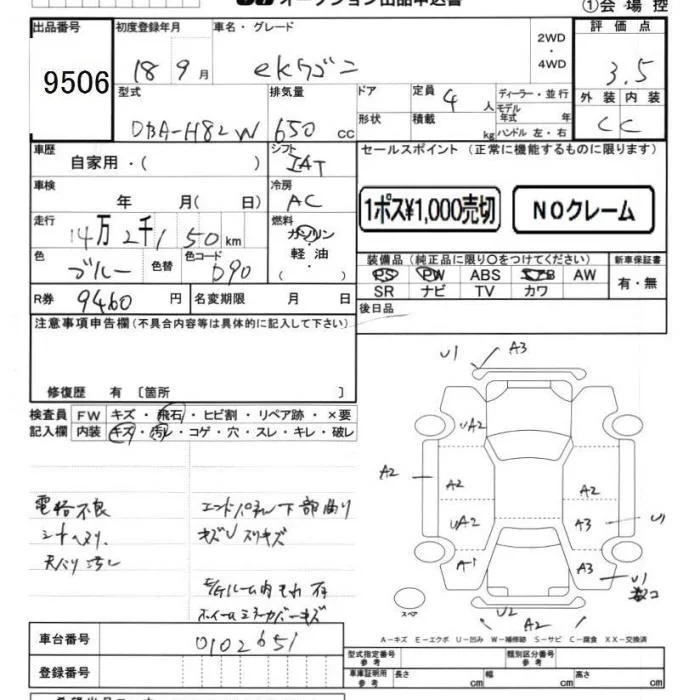 オークション出品申込書
①会場控
出品番号 初度登録年月 車名・グレード 2WD・4WD 評価点
9506 18 9月 ekワゴン 3.5
型式 排気量 ドア 定員 4人 ディーラー・並行 外装 内装
DBA-H82W 650cc 形状 積載 kg モデル年式 年 C C
ハンドル 左・右
車歴 シフト セールスポイント (正常に機能するものに限ります)
自家用・( ) IAT
車検 冷房
年 月( 日) AC 1ポス¥1,000売切 NOクレーム
走行 燃料
14万2千150km ガソリン・軽油・( )
色 色替 色コード 装備品 (純正品に限り○をつけてください) 新車保証書
ブルー D90 PS PW ABS エアB AW 有・無
SR ナビ TV カワ
R券 9460円 名変期限 月 日 後日品
注意事項申告欄(不具合内容等は具体的に記入して下さい)
修復歴 有 〔箇所 〕
検査員 FW キズ・飛石・ヒビ割・リペア跡・×要
記入欄 内装 キズ・汚レ・コゲ・穴・スレ・キレ・破レ
電格不良 エンドパネル下部曲り
シートヘタリ キズUスリキズ
天バリ汚レ
E/Gルーム内もれ有
ホイールミラーカバーキズ
U1 A3
UA2
A2 A2 A2
UA2 A3 U1
A1 A3 U1
スペア U2 A2
A－キズ E－エクボ U－凹み W－補修跡 S－サビ C－腐食 XX－交換済
車台番号 0102651
型式指定番号 参考 類別区分番号 参考
登録番号 車体証明用 参考 長さ cm 幅 cm 高さ cm